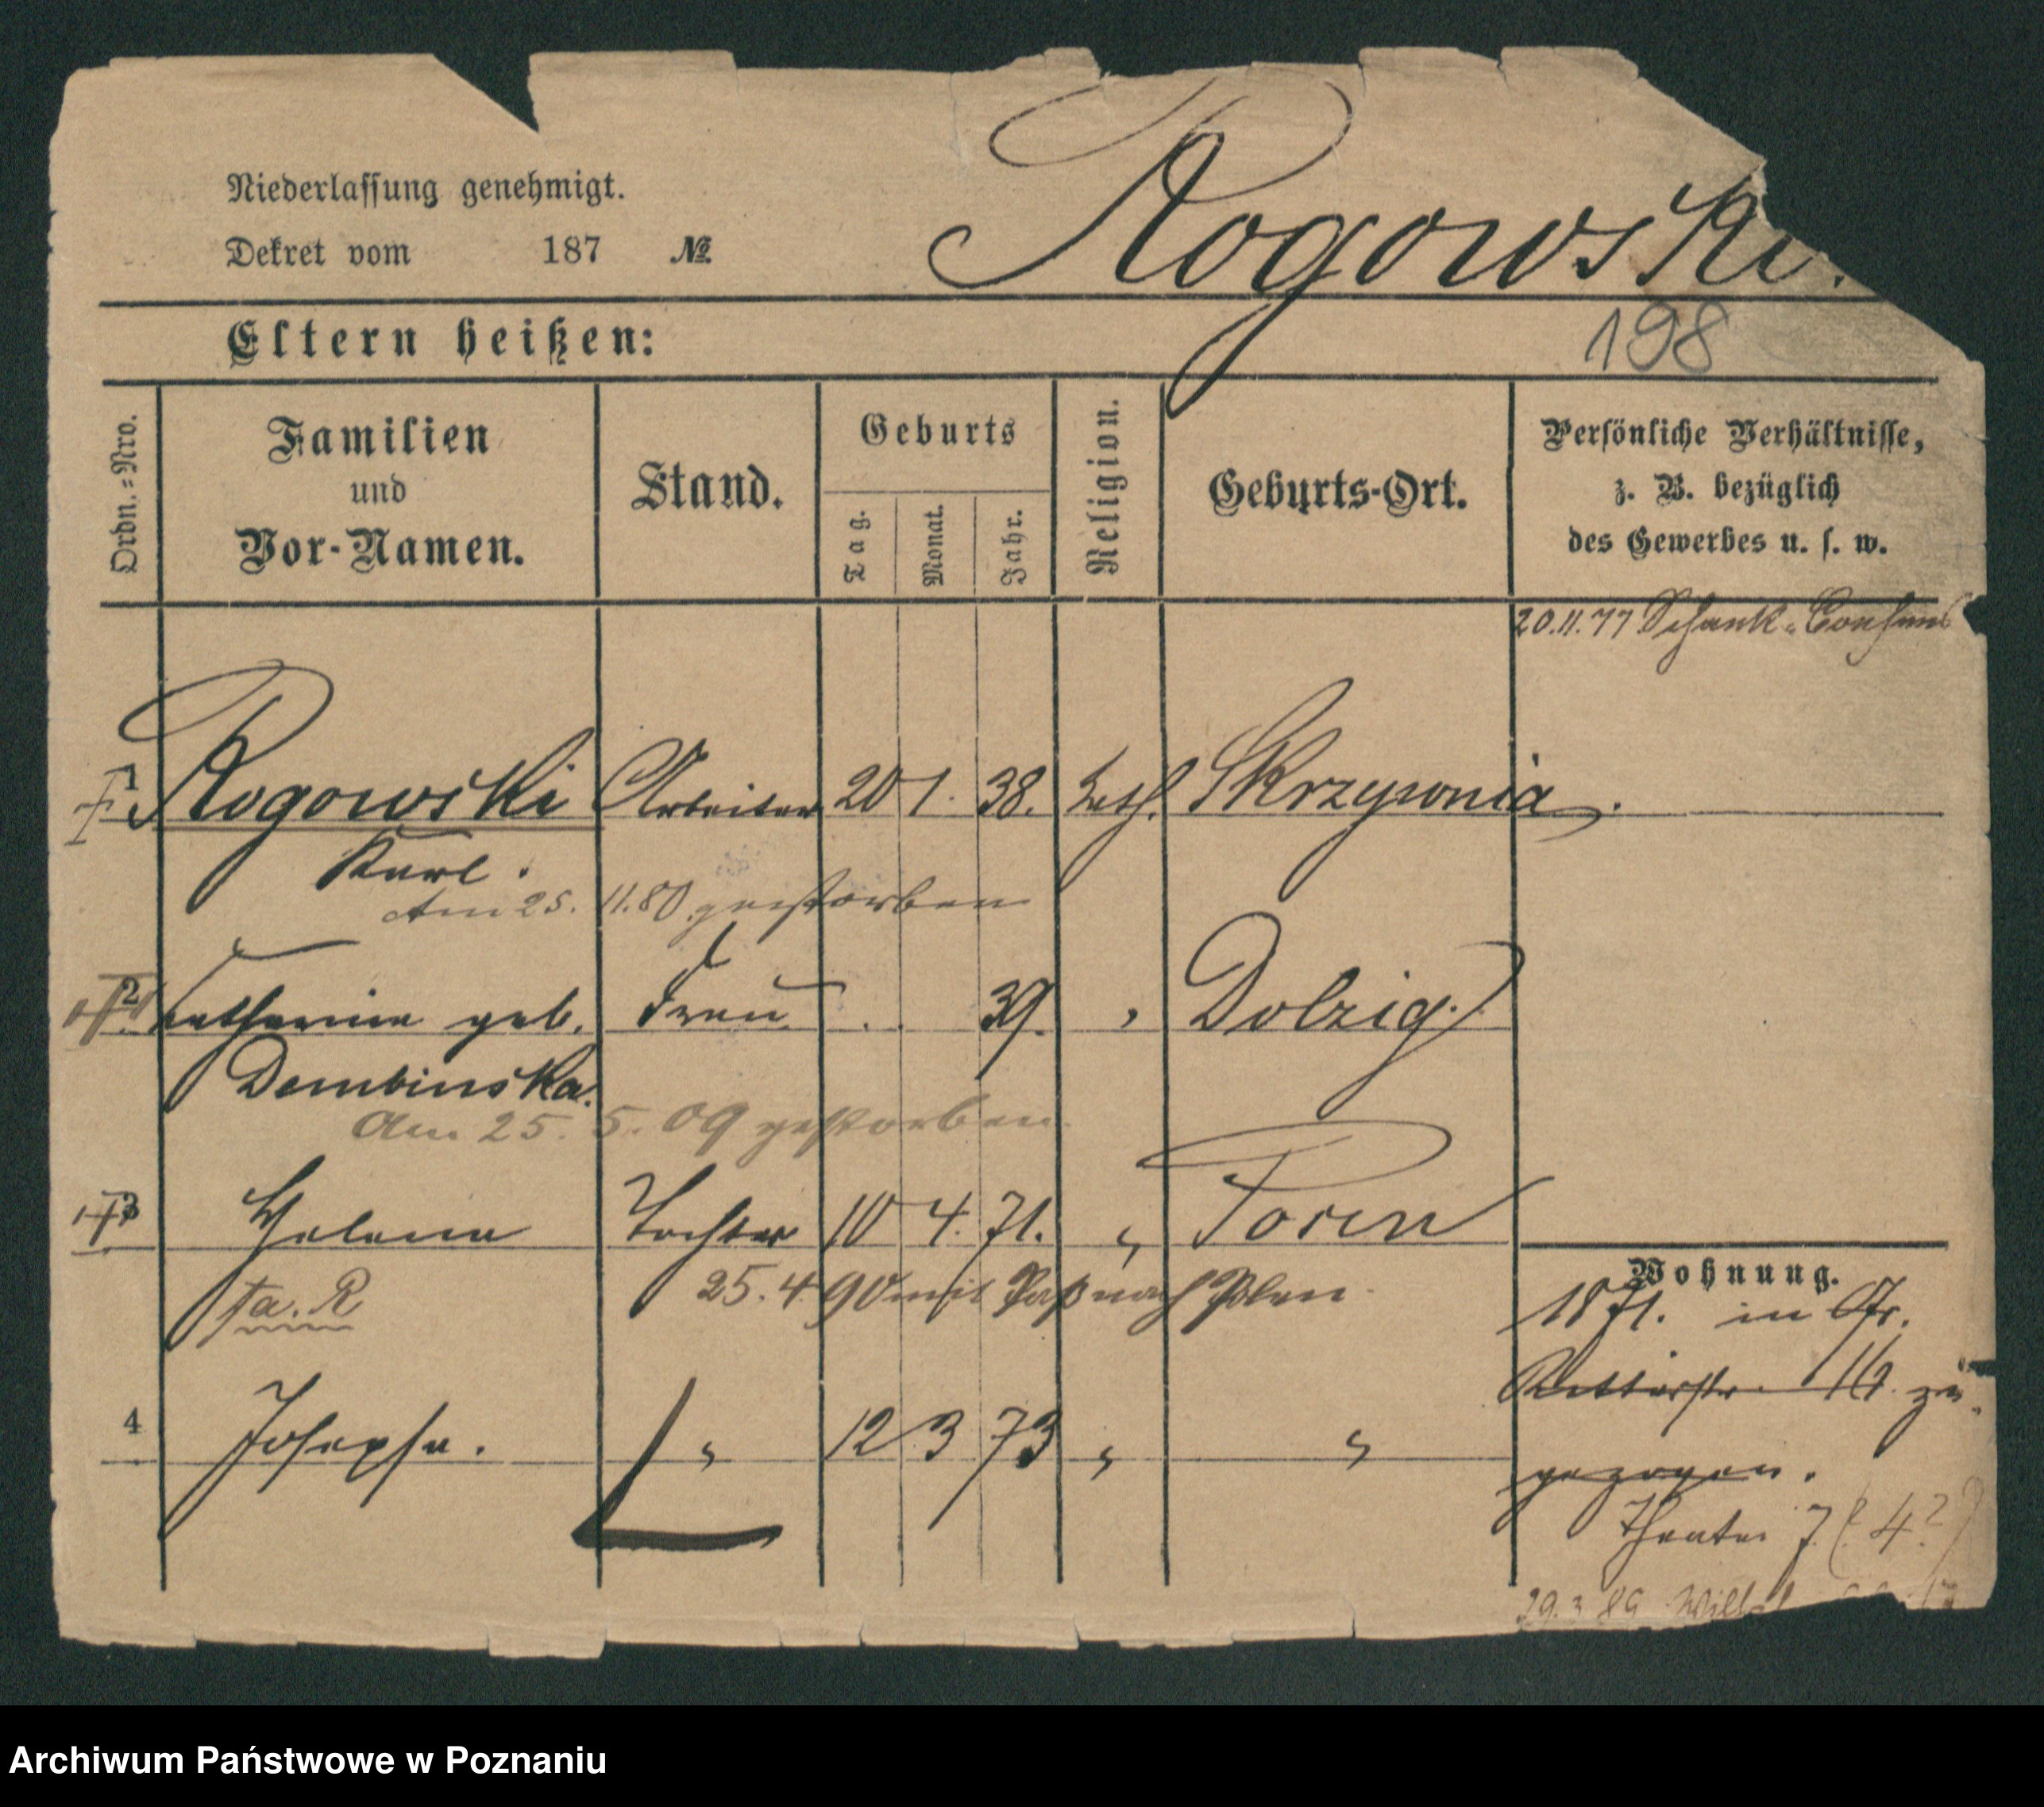 Niederlassung genehmigt.
Dekret vom 187 №
Rogowski.
198
Eltern heißen:
Ordn.=Nro.
Familien
und
Vor-Namen.
Stand.
Geburts
Tag.
Monat.
Jahr.
Religion.
Geburts-Ort.
Persönliche Verhältnisse,
z. B. bezüglich
des Gewerbes u. s. w.
20.11.77 Schank-Consens
1 Rogowski Arbeiter 20 1. 38. kath. Skrzywnia.
Karl.
Am 25. 11.80 gestorben
2 Katharina geb. Frau 39. " Dolzig.
Dembinska.
Am 25. 5. 09 gestorben.
3 Helena Tochter 10 4. 71. " Posen
a. R
25. 4. 90 mit Paß nach Polen.
4 Josepha. " 12 3 73 " "
Wohnung.
1871. in Gr.
Ritterstr. 16. zu-
gezogen.
Theater 7. ( 4?)
29. 3 89
Archiwum Państwowe w Poznaniu